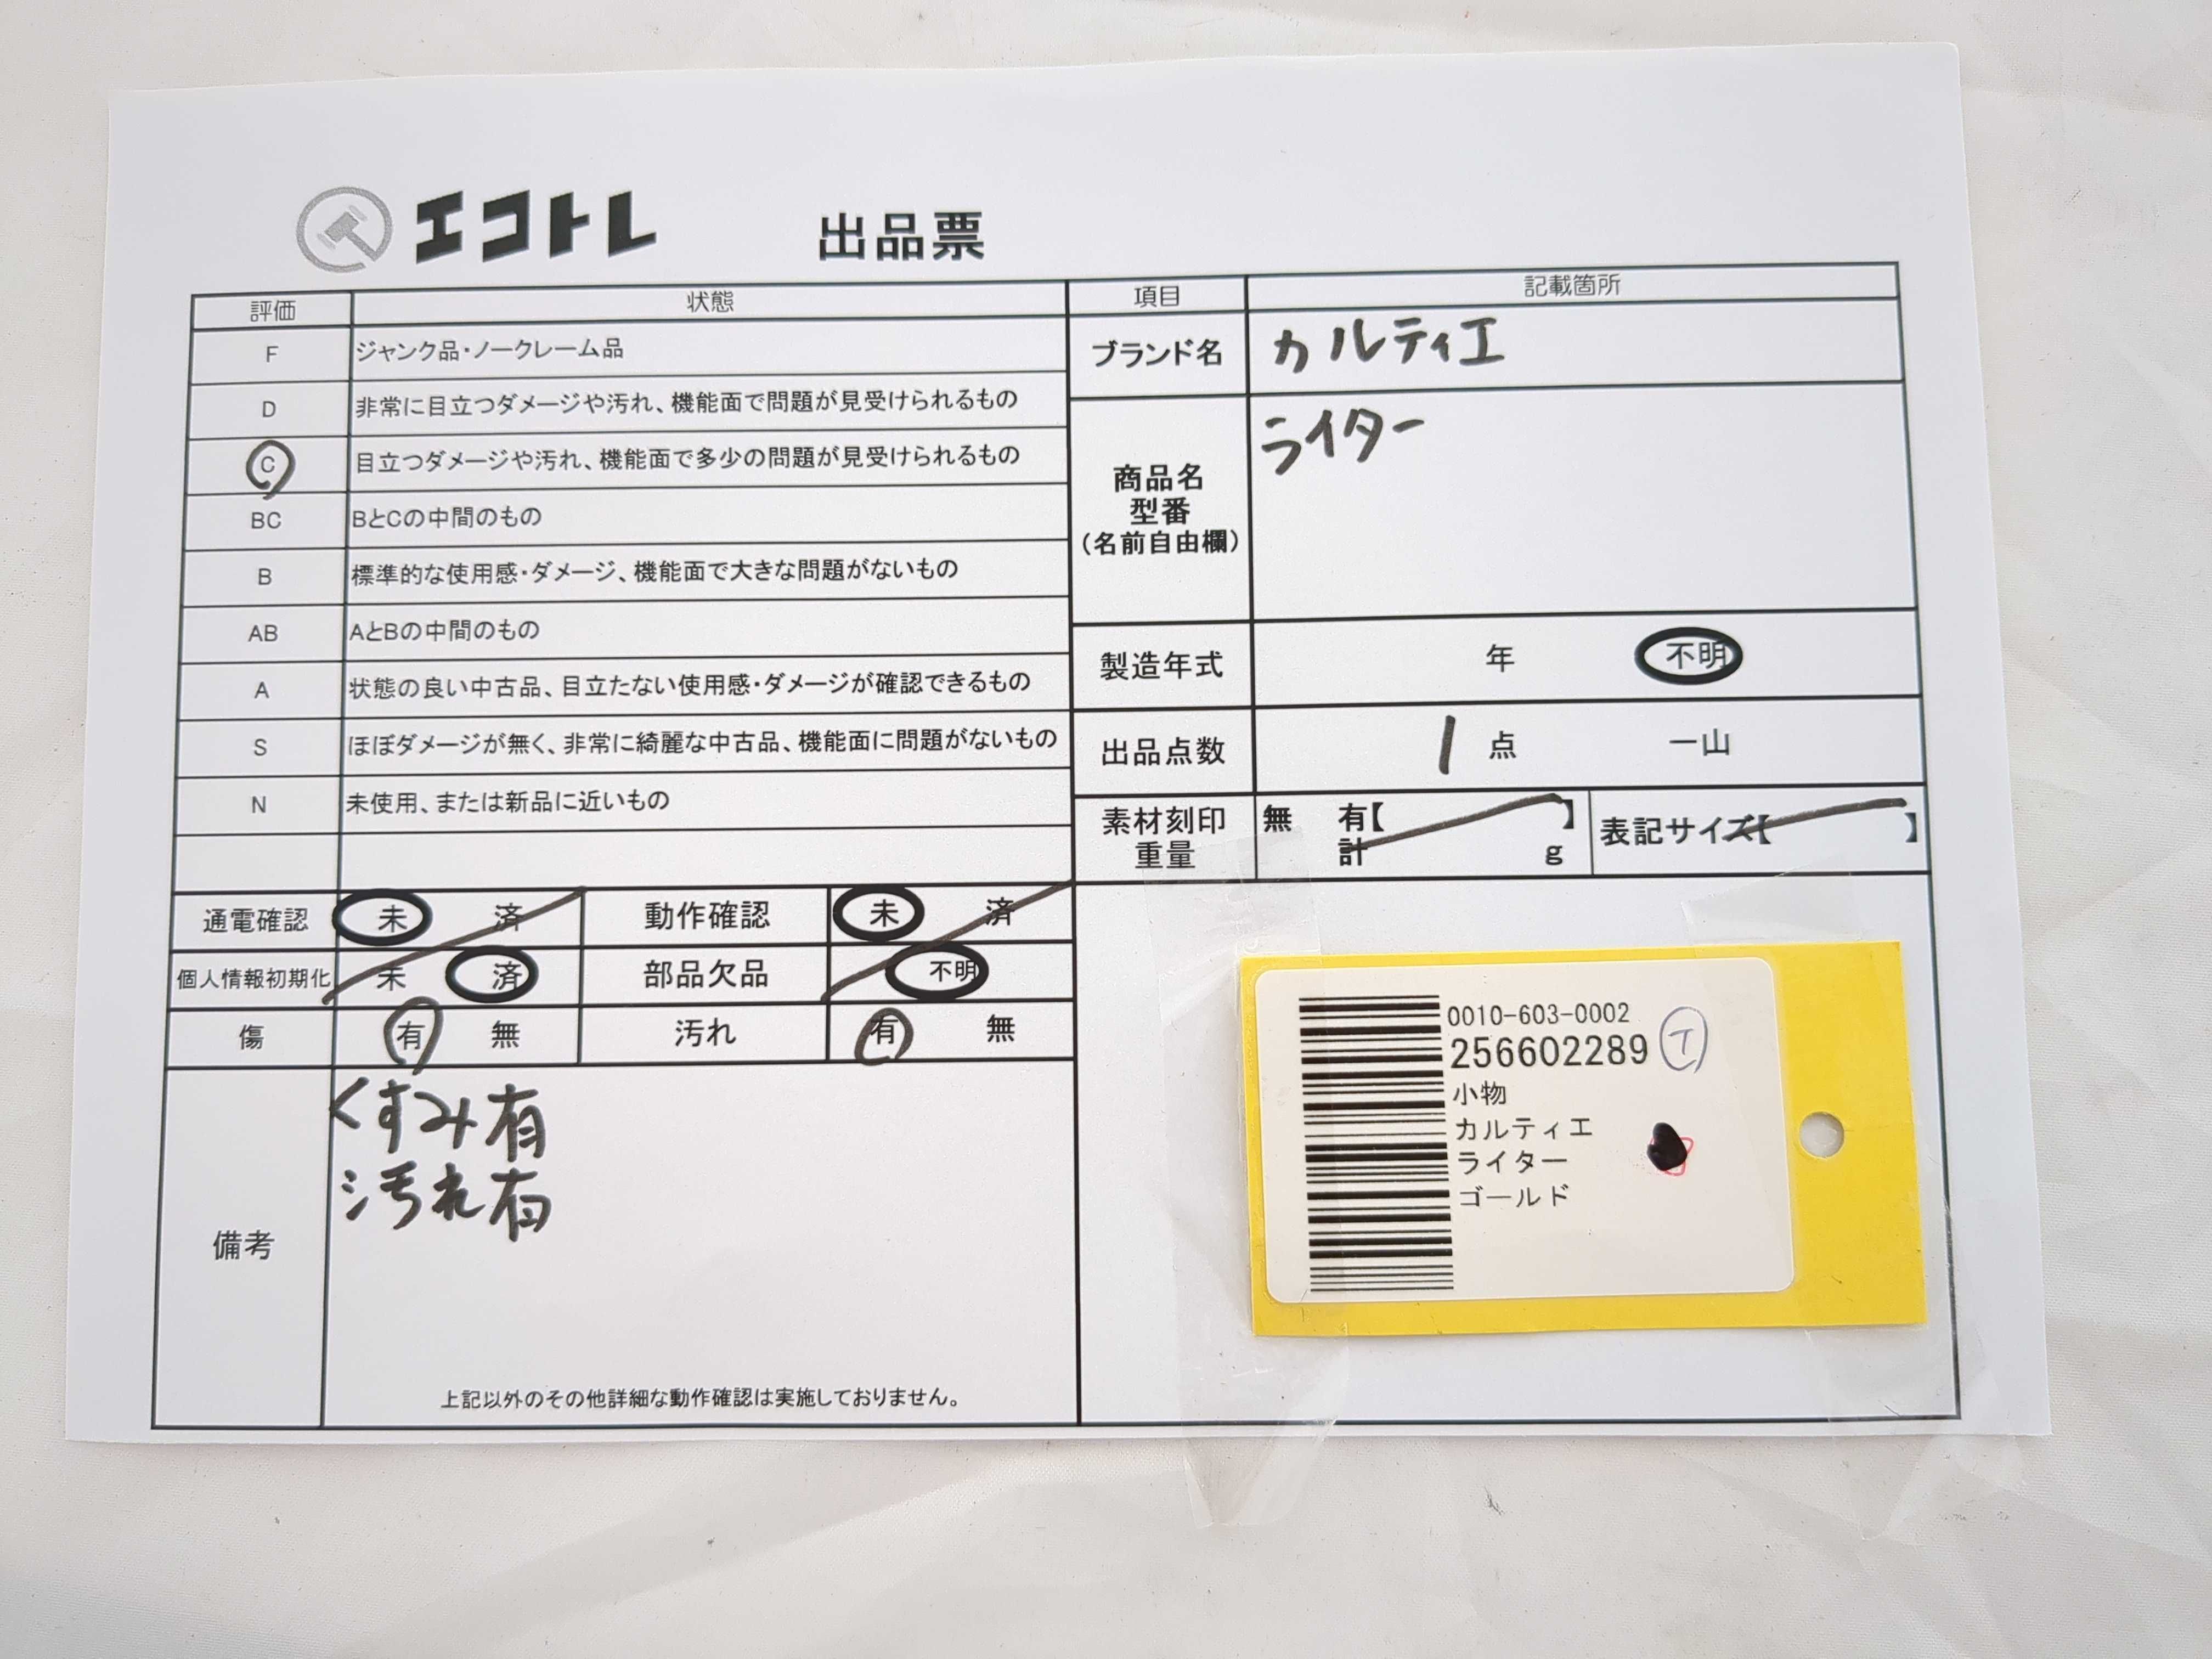 エコトレ 出品票
評価 状態
F ジャンク品・ノークレーム品
D 非常に目立つダメージや汚れ、機能面で問題が見受けられるもの
C 目立つダメージや汚れ、機能面で多少の問題が見受けられるもの
BC BとCの中間のもの
B 標準的な使用感・ダメージ、機能面で大きな問題がないもの
AB AとBの中間のもの
A 状態の良い中古品、目立たない使用感・ダメージが確認できるもの
S ほぼダメージが無く、非常に綺麗な中古品、機能面に問題がないもの
N 未使用、または新品に近いもの
項目 記載箇所
ブランド名 カルティエ
商品名
型番
(名前自由欄)
ライター
製造年式 年 不明
出品点数 1 点 一山
素材刻印
重量
無 有【 】
計 g
表記サイズ【 】
通電確認 未 済 動作確認 未 済
個人情報初期化 未 済 部品欠品 不明
傷 有 無 汚れ 有 無
備考
くすみ有
汚れ有
上記以外のその他詳細な動作確認は実施しておりません。
0010-603-0002
256602289 T
小物
カルティエ
ライター
ゴールド